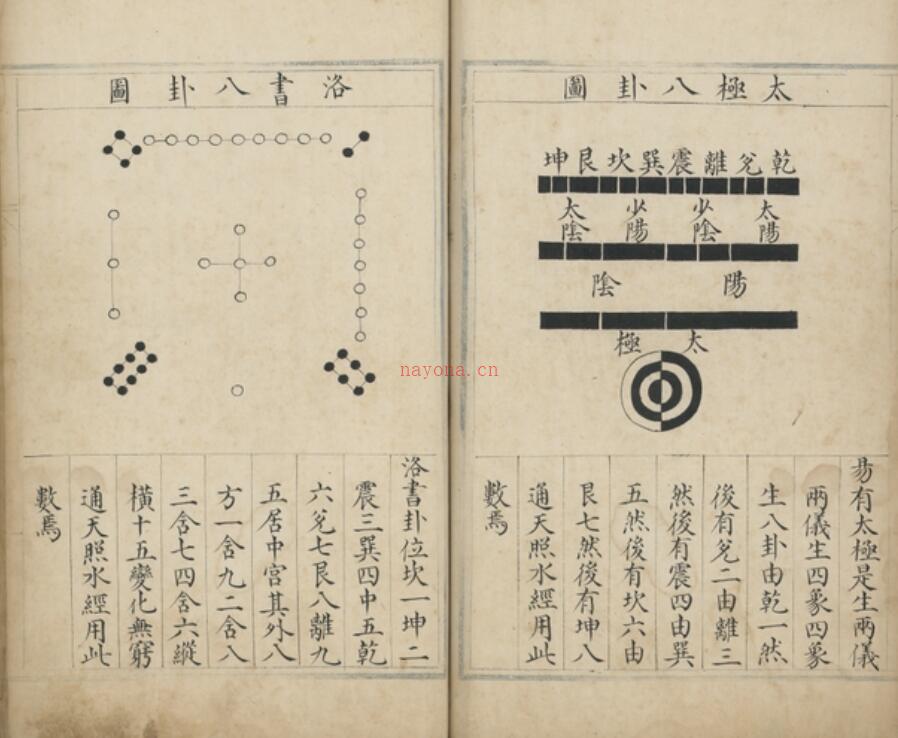 太極八卦圖
乾兌離震巽坎艮坤
太陽少陰少陽太陰
陽陰
太極
易有太極是生兩儀
兩儀生四象四象
生八卦由乾一然
後有兌二由離三
然後有震四由巽
五然後有坎六由
艮七然後有坤八
通天照水經用此
數焉
洛書八卦圖
洛書卦位坎一坤二
震三巽四中五乾
六兌七艮八離九
五居中宮其外八
方一含九二含八
三含七四含六縱
橫十五變化無窮
通天照水經用此
數焉
nayona.cn